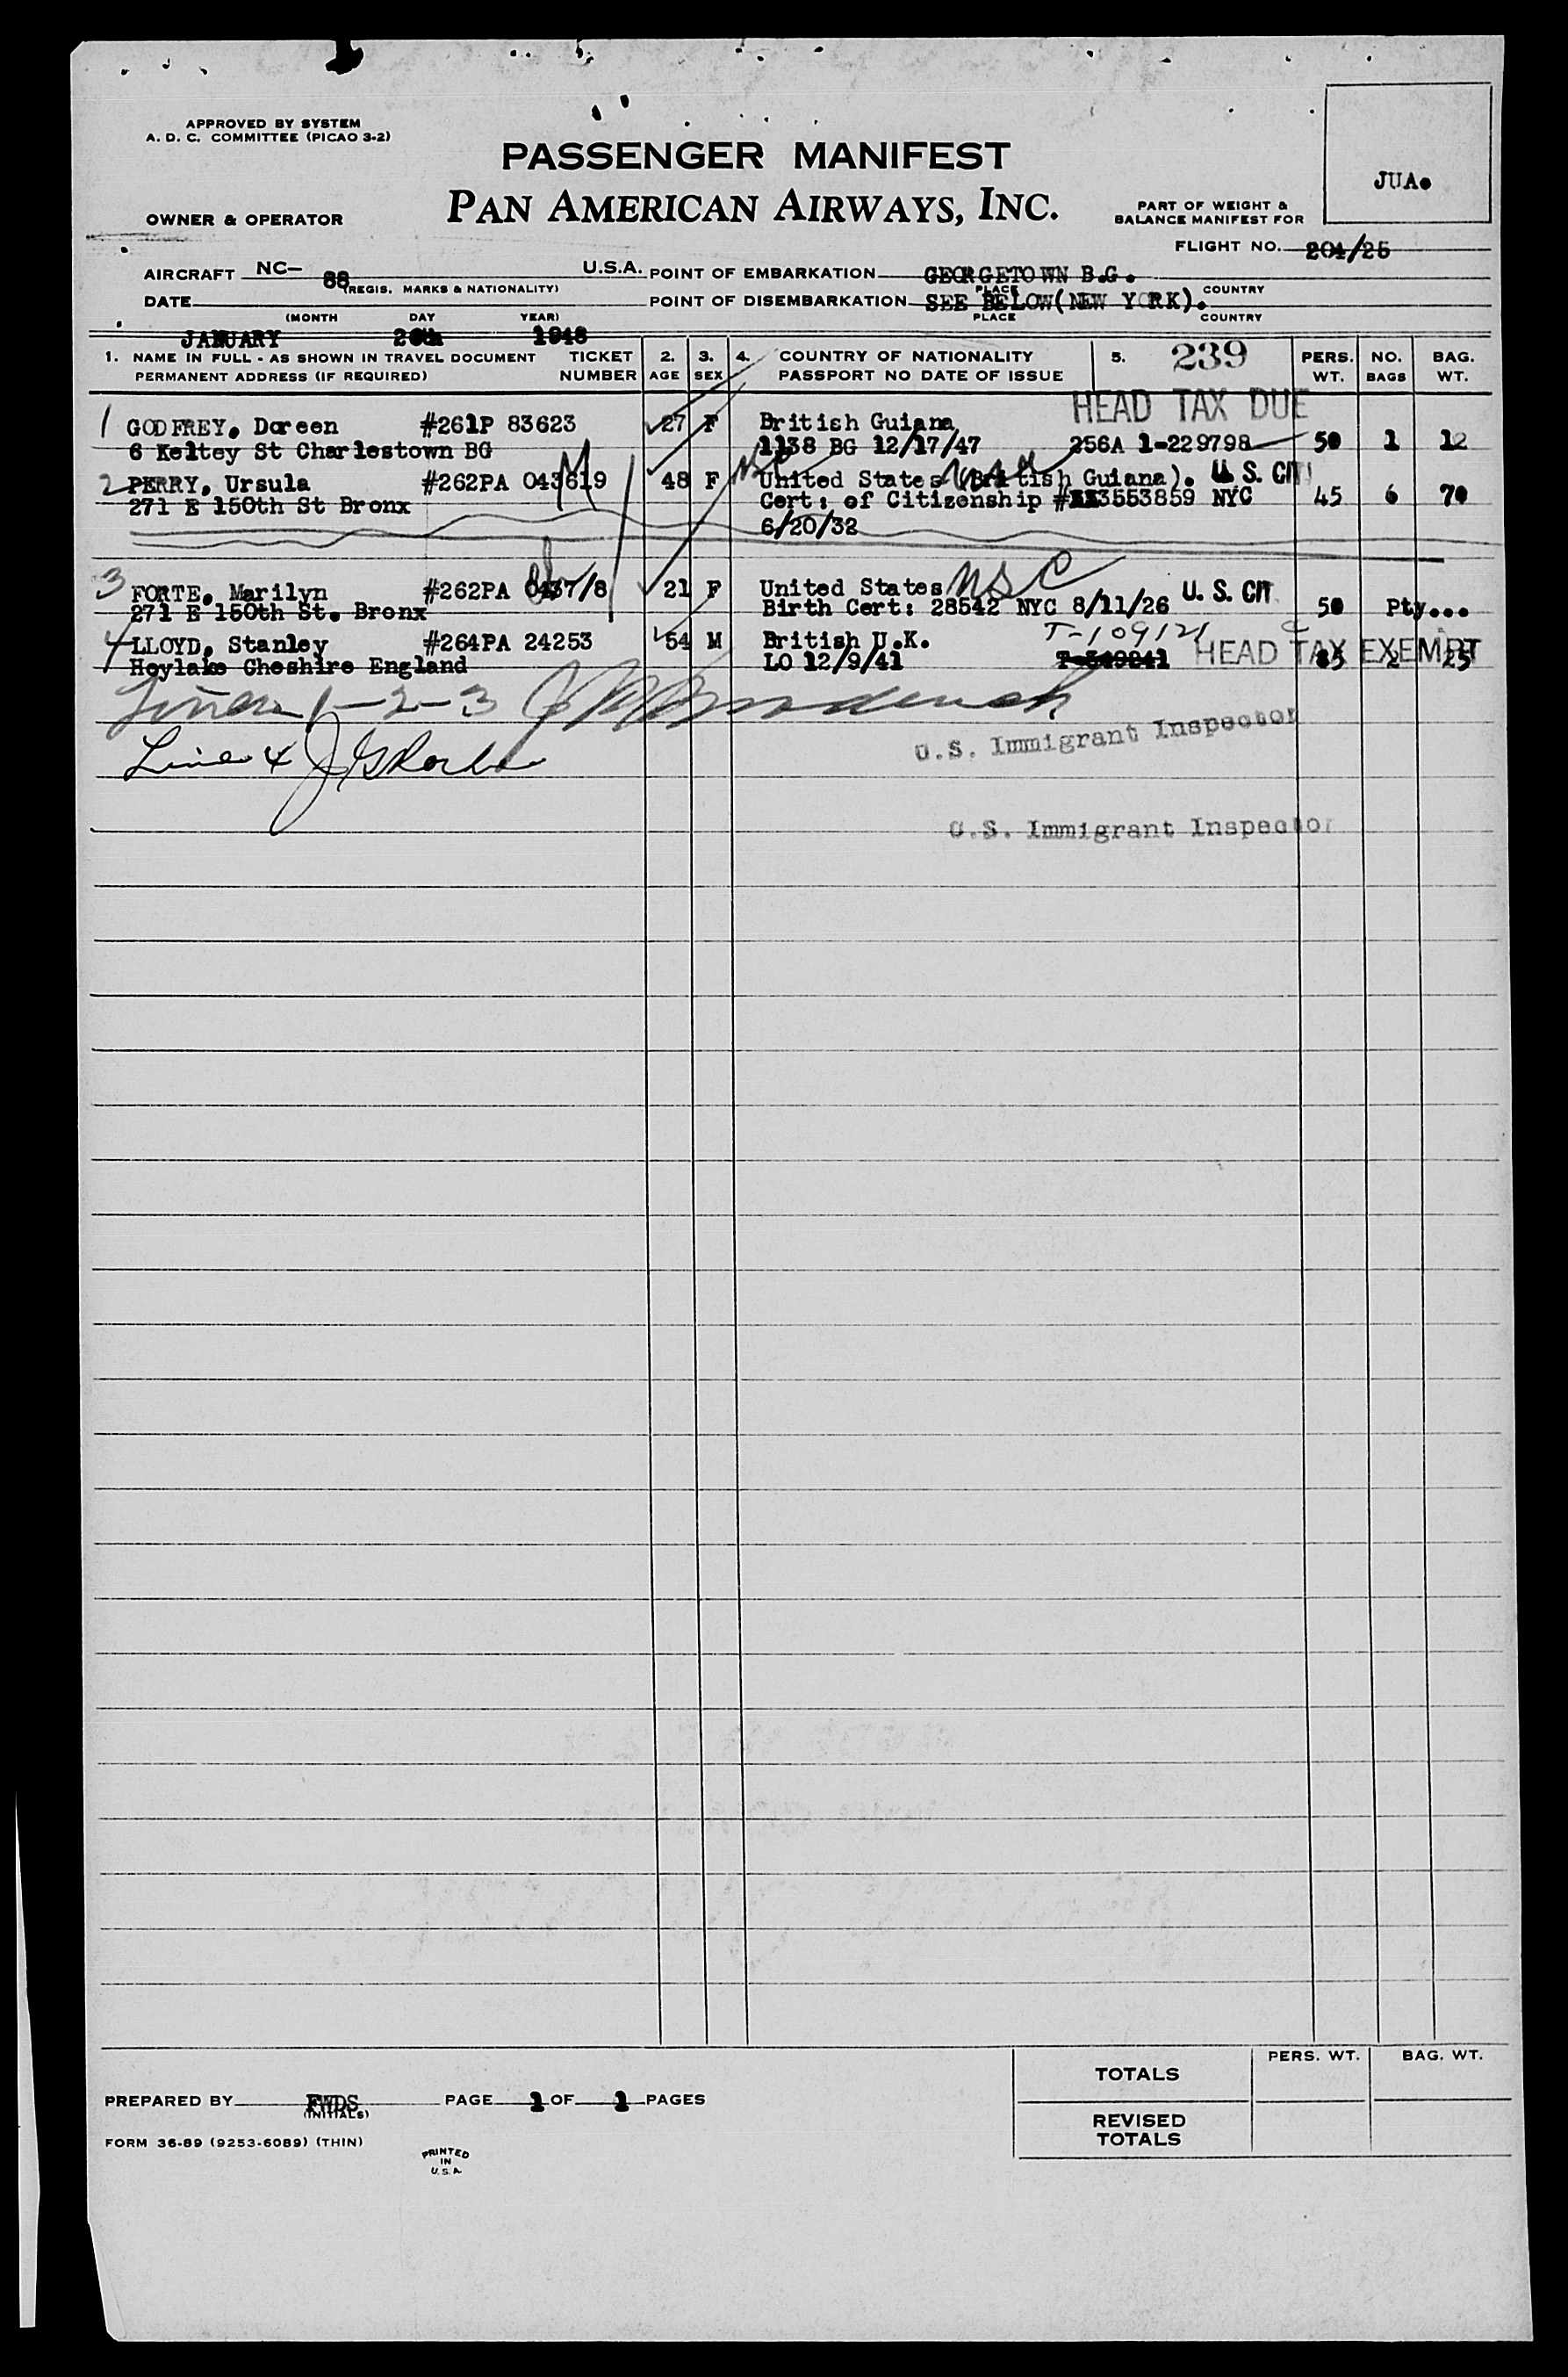 APPROVED BY SYSTEM
A. D. C. COMMITTEE (PICAO 3-2)
PASSENGER MANIFEST
PAN AMERICAN AIRWAYS, INC.
OWNER & OPERATOR
JUA.
PART OF WEIGHT &
BALANCE MANIFEST FOR
FLIGHT NO. 201/25
AIRCRAFT NC- 88 U.S.A. POINT OF EMBARKATION GEORGETOWN B.G.
(REGIS. MARKS & NATIONALITY) PLACE COUNTRY
DATE POINT OF DISEMBARKATION SEE BELOW(NEW YORK).
(MONTH DAY YEAR) PLACE COUNTRY
JANUARY 1948
1. NAME IN FULL - AS SHOWN IN TRAVEL DOCUMENT TICKET 2. 3. 4. COUNTRY OF NATIONALITY 5. 239 PERS. NO. BAG.
PERMANENT ADDRESS (IF REQUIRED) NUMBER AGE SEX PASSPORT NO DATE OF ISSUE WT. BAGS WT.
HEAD TAX DUE
1 GODFREY, Doreen #261P 83623 27 F British Guiana
6 Keltey St Charlestown BG 1138 BG 12/17/47 256A 1-229798 50 1 12
2 PERRY, Ursula #262PA 043619 48 F United States (British Guiana). U. S. CIT
271 E 150th St Bronx Cert: of Citizenship #3553859 NYC 45 6 70
6/20/32
3 FORTE, Marilyn #262PA 0437/8 21 F United States USC U. S. CIT
271 E 150th St. Bronx Birth Cert: 28542 NYC 8/11/26 50 Pty...
4 LLOYD, Stanley #264PA 24253 54 M British U.K. T-109121 HEAD TAX EXEMPT
Hoylake Cheshire England LO 12/9/41 85 2 25
Lines 1-2-3
U.S. Immigrant Inspector
Line 4
U.S. Immigrant Inspector
TOTALS PERS. WT. BAG. WT.
PREPARED BY FWDS PAGE 1 OF 1 PAGES
(INITIALS)
REVISED
TOTALS
FORM 36-89 (9253-6089) (THIN)
PRINTED
IN
U.S.A.